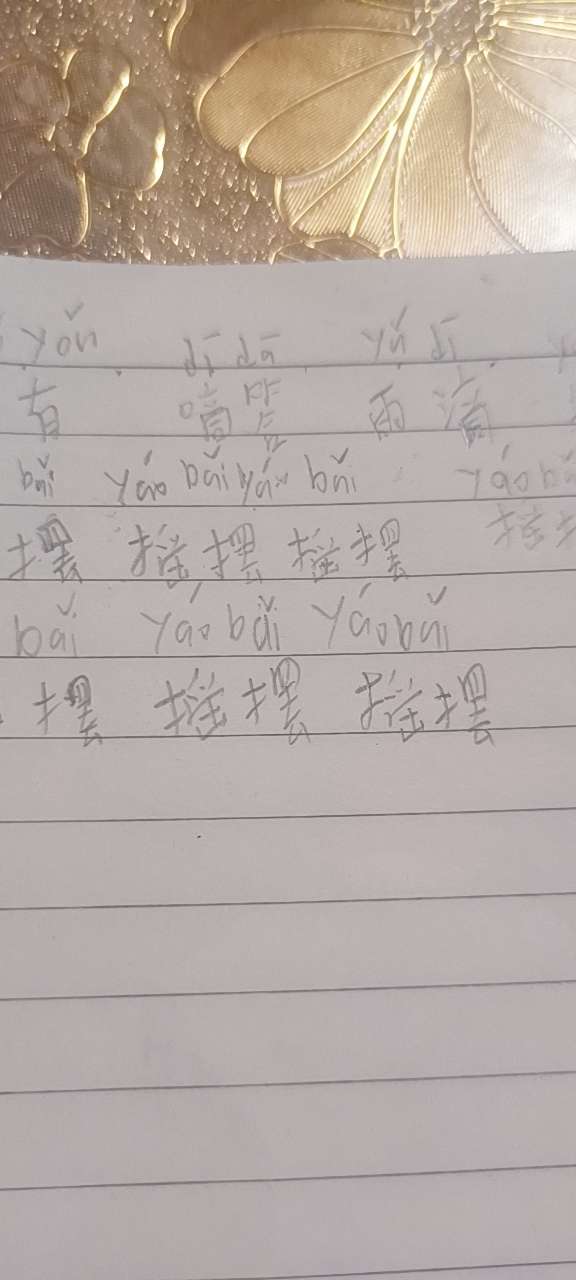 yǒu dī dā yǔ dī
有 嘀嗒 雨滴
bǎi yáo bǎi yáo bǎi yáo bǎ
摆 摇摆 摇摆 摇
bǎi yáo bǎi yáo bǎi
摆 摇摆 摇摆